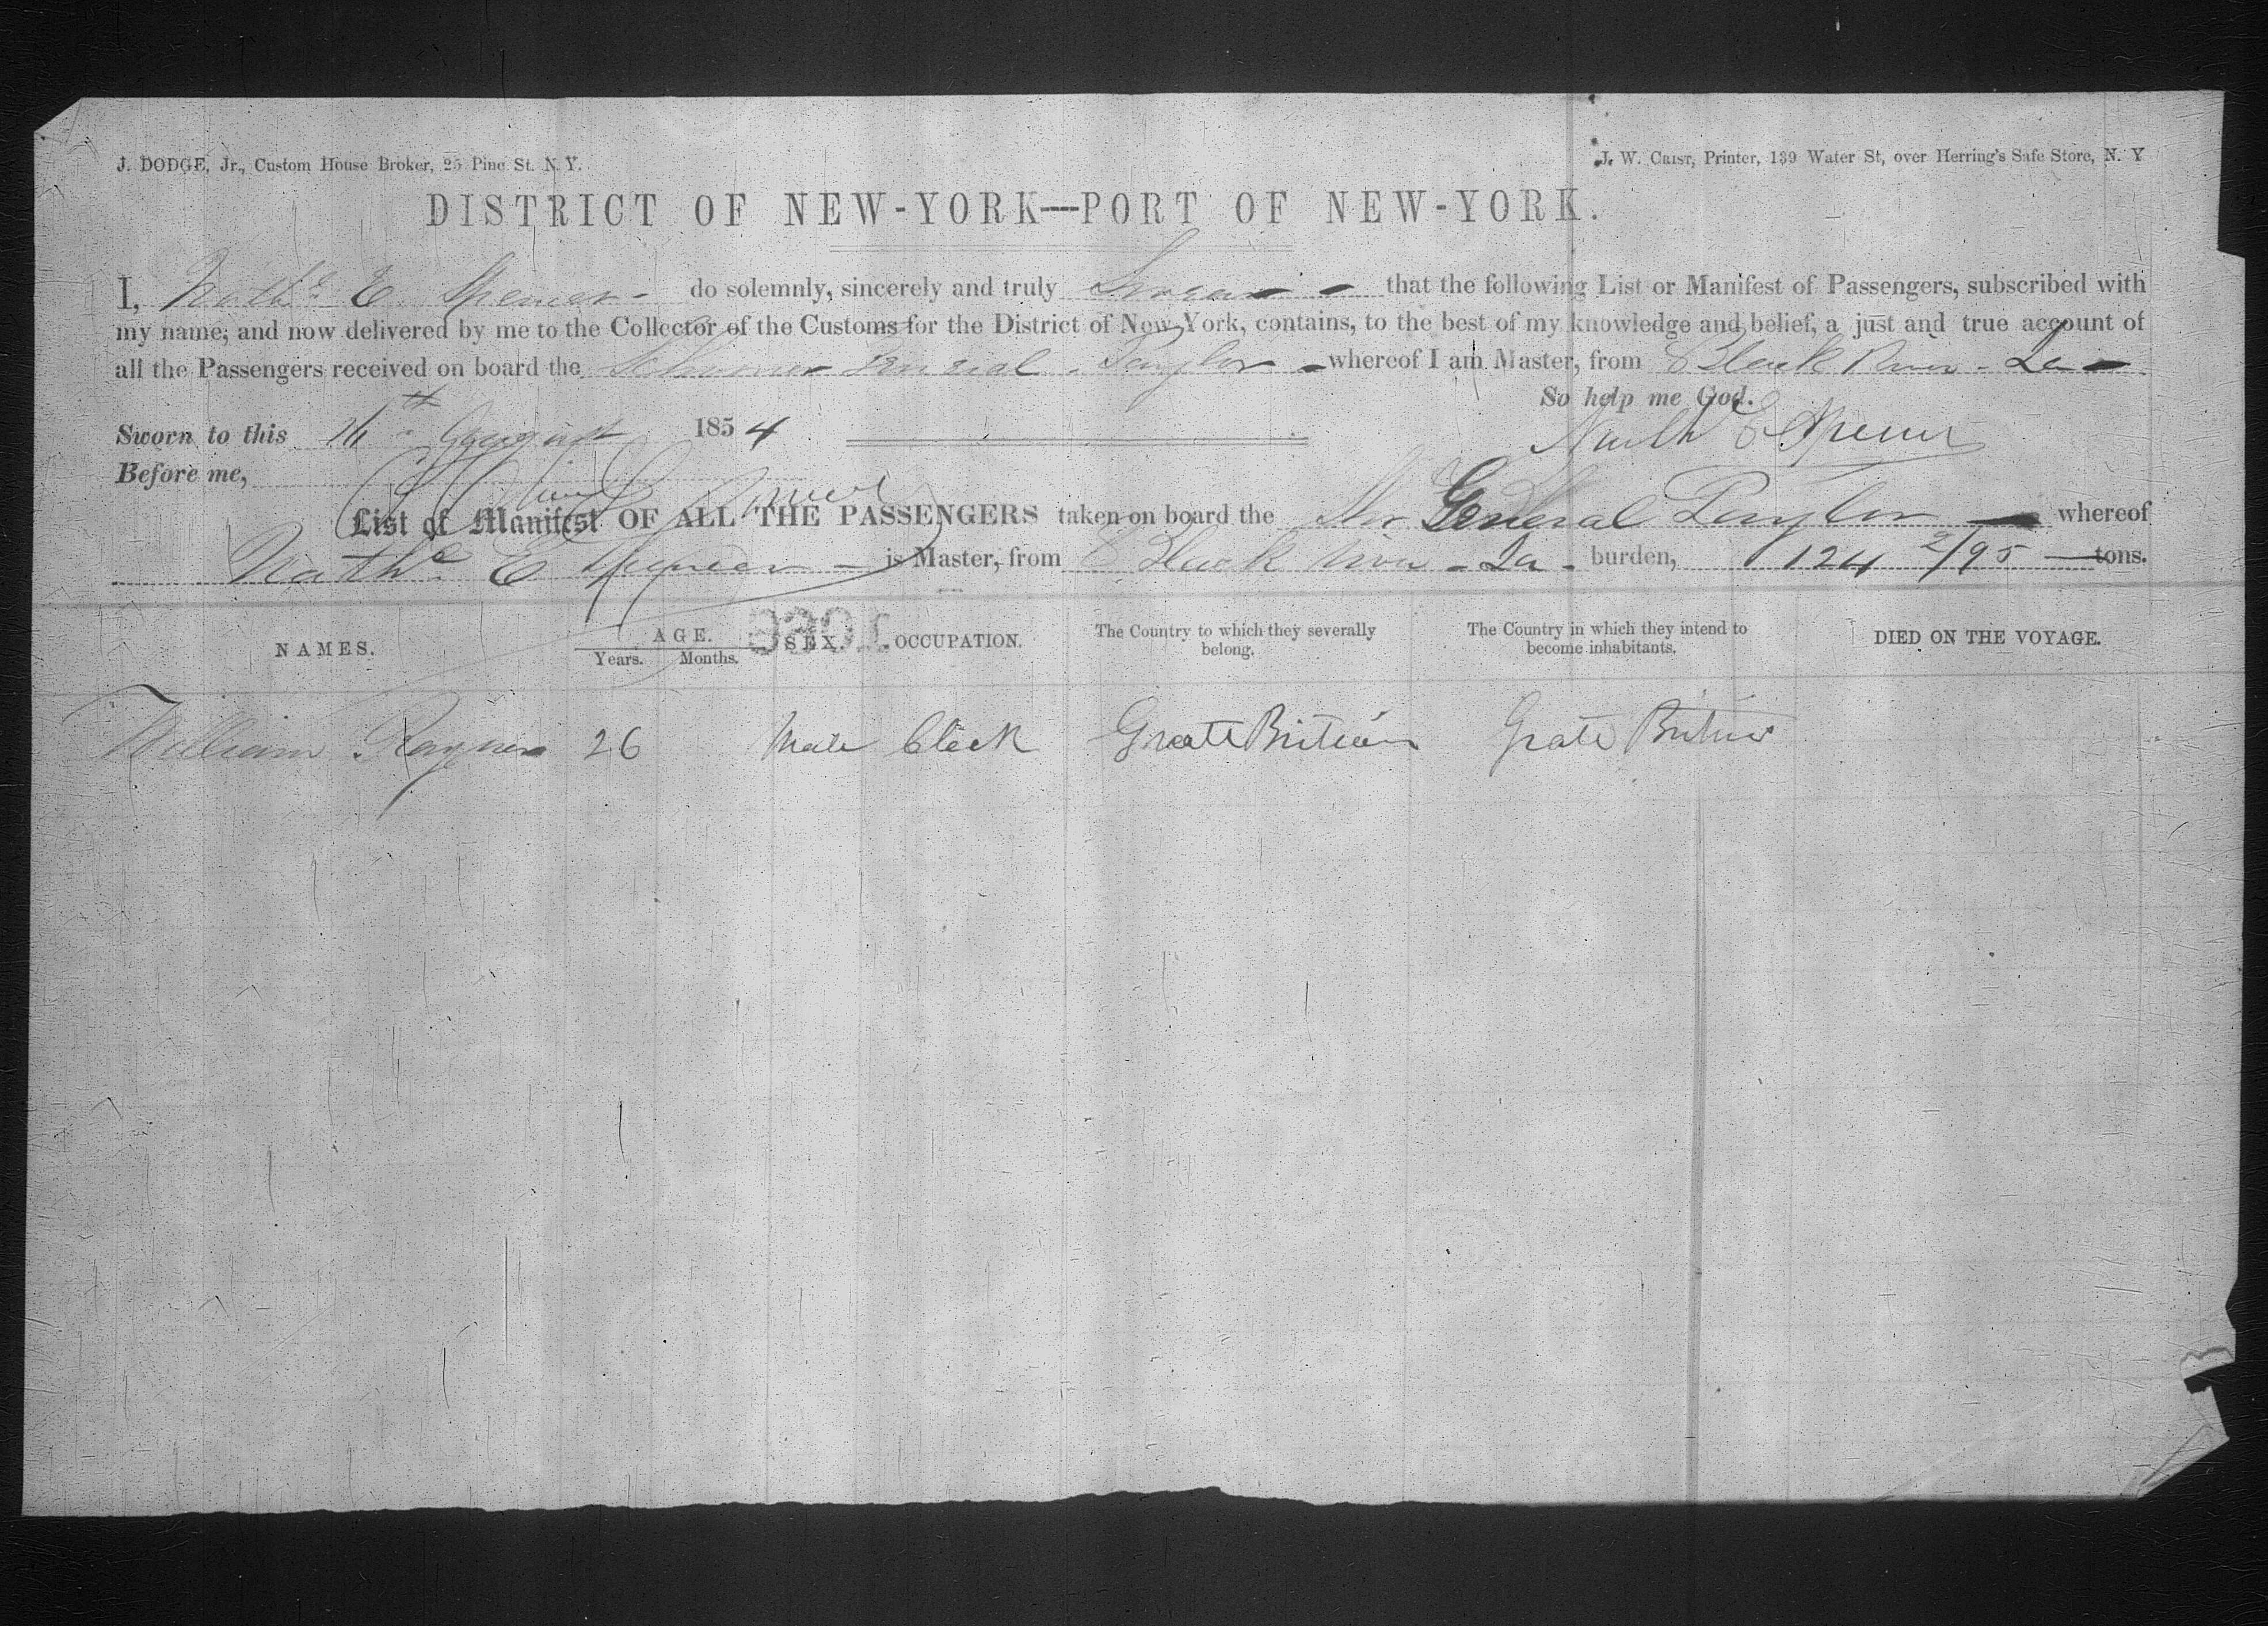 J. DODGE, Jr., Custom House Broker, 25 Pine St. N. Y.
J. W. CRIST, Printer, 139 Water St, over Herring's Safe Store, N. Y
DISTRICT OF NEW-YORK—PORT OF NEW-YORK.
I, Nathl. E. Spencer do solemnly, sincerely and truly Swear that the following List or Manifest of Passengers, subscribed with
my name, and now delivered by me to the Collector of the Customs for the District of New York, contains, to the best of my knowledge and belief, a just and true account of
all the Passengers received on board the Schooner General Taylor whereof I am Master, from Black River - Ja
So help me God.
Sworn to this 16th August 1854
Nathl E Spencer
Before me,
List of Manifest OF ALL THE PASSENGERS taken on board the Shr General Taylor whereof
Nathl. E Spencer is Master, from Black River - Ja - burden, 124 2/95 tons.
NAMES. AGE. SEX. OCCUPATION. The Country to which they severally belong. The Country in which they intend to become inhabitants. DIED ON THE VOYAGE.
Years. Months.
William Rayner 26 Male Clerk Greate Britain Grate Britain